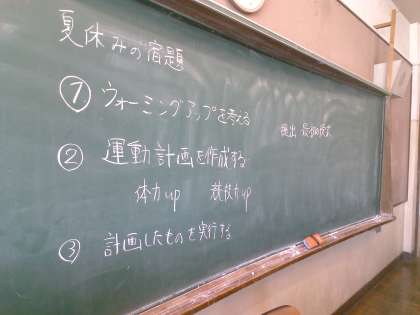 夏休みの宿題
① ウォーミングアップを考える
② 運動計画を作成する
体力up 競技力up
③ 計画したものを実行する
提出